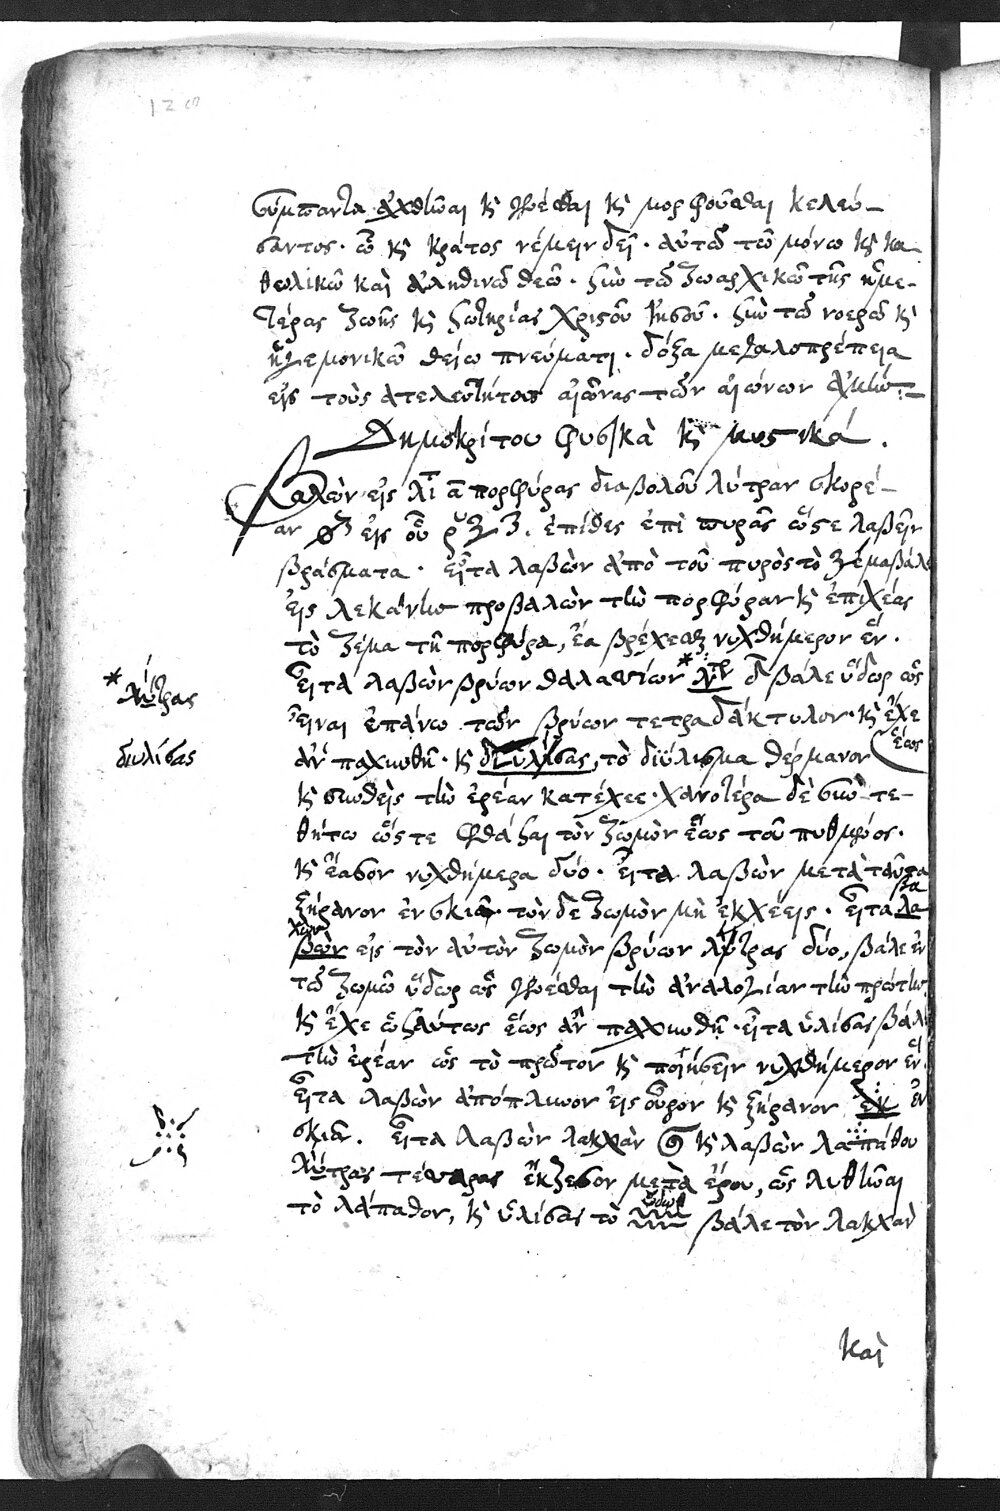 σύμπαντα ἀχθῆναι καὶ γενέσθαι καὶ μορφοῦσθαι κελεύ-
σαντος. ᾧ καὶ κράτος νέμειν δεῖ. αὐτῷ τῷ μόνῳ καὶ κα
θολικῷ καὶ ἀληθινῷ θεῷ. σὺν τῷ ζωαρχικῷ τῆς ἡμε-
τέρας ζωῆς καὶ σωτηρίας χριστοῦ ἰησοῦ. σὺν τῷ νοερῷ καὶ
ἡγεμονικῷ θείῳ πνεύματι. δόξα μεγαλοπρέπεια
εἰς τοὺς ἀτελευτήτους αἰῶνας τῶν αἰώνων ἀμήν:-
Δημοκρίτου φυσικὰ καὶ μυστικά.
Βαλὼν εἰς λι α πορφύρας διαβολοῦ λύτραν σκορέ-
αν εἰς οὖ. ἐπίθες ἐπὶ πυρᾶς ὥστε λαβεῖν
βράσματα. εἶτα λαβὼν ἀπὸ τοῦ πυρὸς τὸ ζέμα βάλε
εἰς λεκάνην προβαλὼν τὴν πορφύραν καὶ ἐπιχέας
τὸ ζέμα τῇ πορφύρᾳ, ἔα βρέχεσθαι νυχθήμερον ἕν.
εἶτα λαβὼν βρύων θαλασσίων * λιτρ δ βάλε ὕδωρ ὡς
εἶναι ἐπάνω τῶν βρύων τετραδάκτυλον. καὶ ἔχε
ἕως
ἂν παχυνθῇ. καὶ διυλίσας, τὸ διύλισμα θέρμανον
καὶ συνθεὶς τὴν ἐρέαν κατέχεε. χανοτέρα δὲ συν-τε-
θήτω ὥστε φθάσαι τὸν ζωμὸν ἕως τοῦ πυθμένος.
καὶ ἔασον νυχθήμερα δύο. εἶτα λαβὼν μετὰ ταῦτα
ξήρανον ἐν σκιᾷ. τὸν δὲ ζωμὸν μὴ ἐκχέεις. εἶτα λα
βὼν εἰς τὸν αὐτὸν ζωμὸν βρύων λύτρας δύο, βάλε ἐν
τῷ ζωμῷ ὕδωρ ὡς γενέσθαι τὴν ἀναλογίαν τὴν πρώτην.
καὶ ἔχε ὡσαύτως ἕως ἂν παχυνθῇ. εἶτα ὑλίσας βάλε
τὴν ἐρέαν ὡς τὸ πρῶτον καὶ ποιήσειν νυχθήμερον ἕν.
εἶτα λαβὼν ἀπόπλυνον εἰς οὖρον καὶ ξήρανον ἐν
σκιᾷ. εἶτα λαβὼν λακχὰν καὶ λαβὼν λαπάθου
λύτρας τέσσαρας ἔκζεσον μετὰ ἔρου, ὡς λυθῆναι
τὸ λάπαθον, καὶ ὑλίσας τὸ ὕδωρ βάλε τὸν λακχὰν
καὶ
* λύτρας
διυλίσας